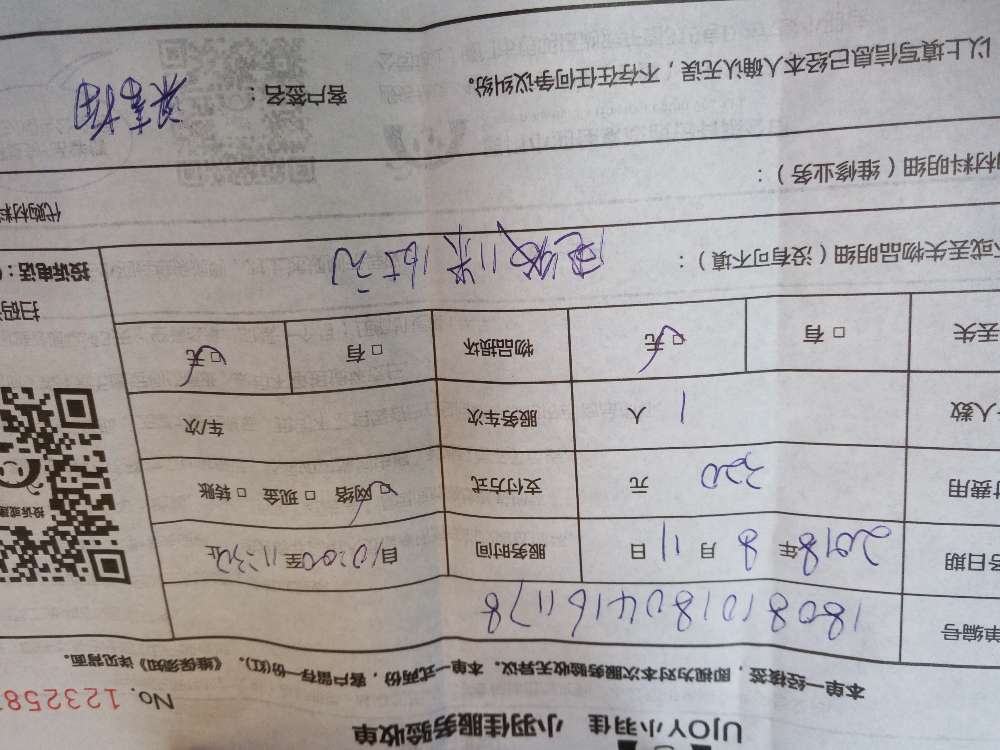 UJOY小羽佳 小羽佳服务验收单
No. 1232587
本单一经接签，即视为对本次服务验收无异议。本单一式两份，客户留存一份(红)。《维保须知》详见背面。
单编号 1808101804161178
务日期 2018年 8 月 11 日 服务时间 自10:00至11:32止
付费用 320 元 支付方式 □网络 □现金 □转账
人数 1 人 服务车次 车/次
丢失 □有 □无 物品损坏 □有 □无
或丢失物品明细（没有可不填）：
投诉电话：
扫码
投诉或建
材料明细（维修业务）：
代购材料
以上填写信息已经本人确认无误，不存在任何争议纠纷。
客户签名：